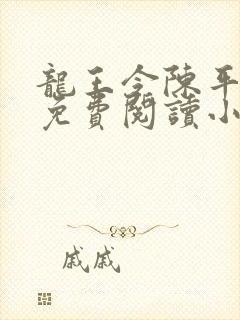 龍王令陳平
免費閱讀小
戚戚